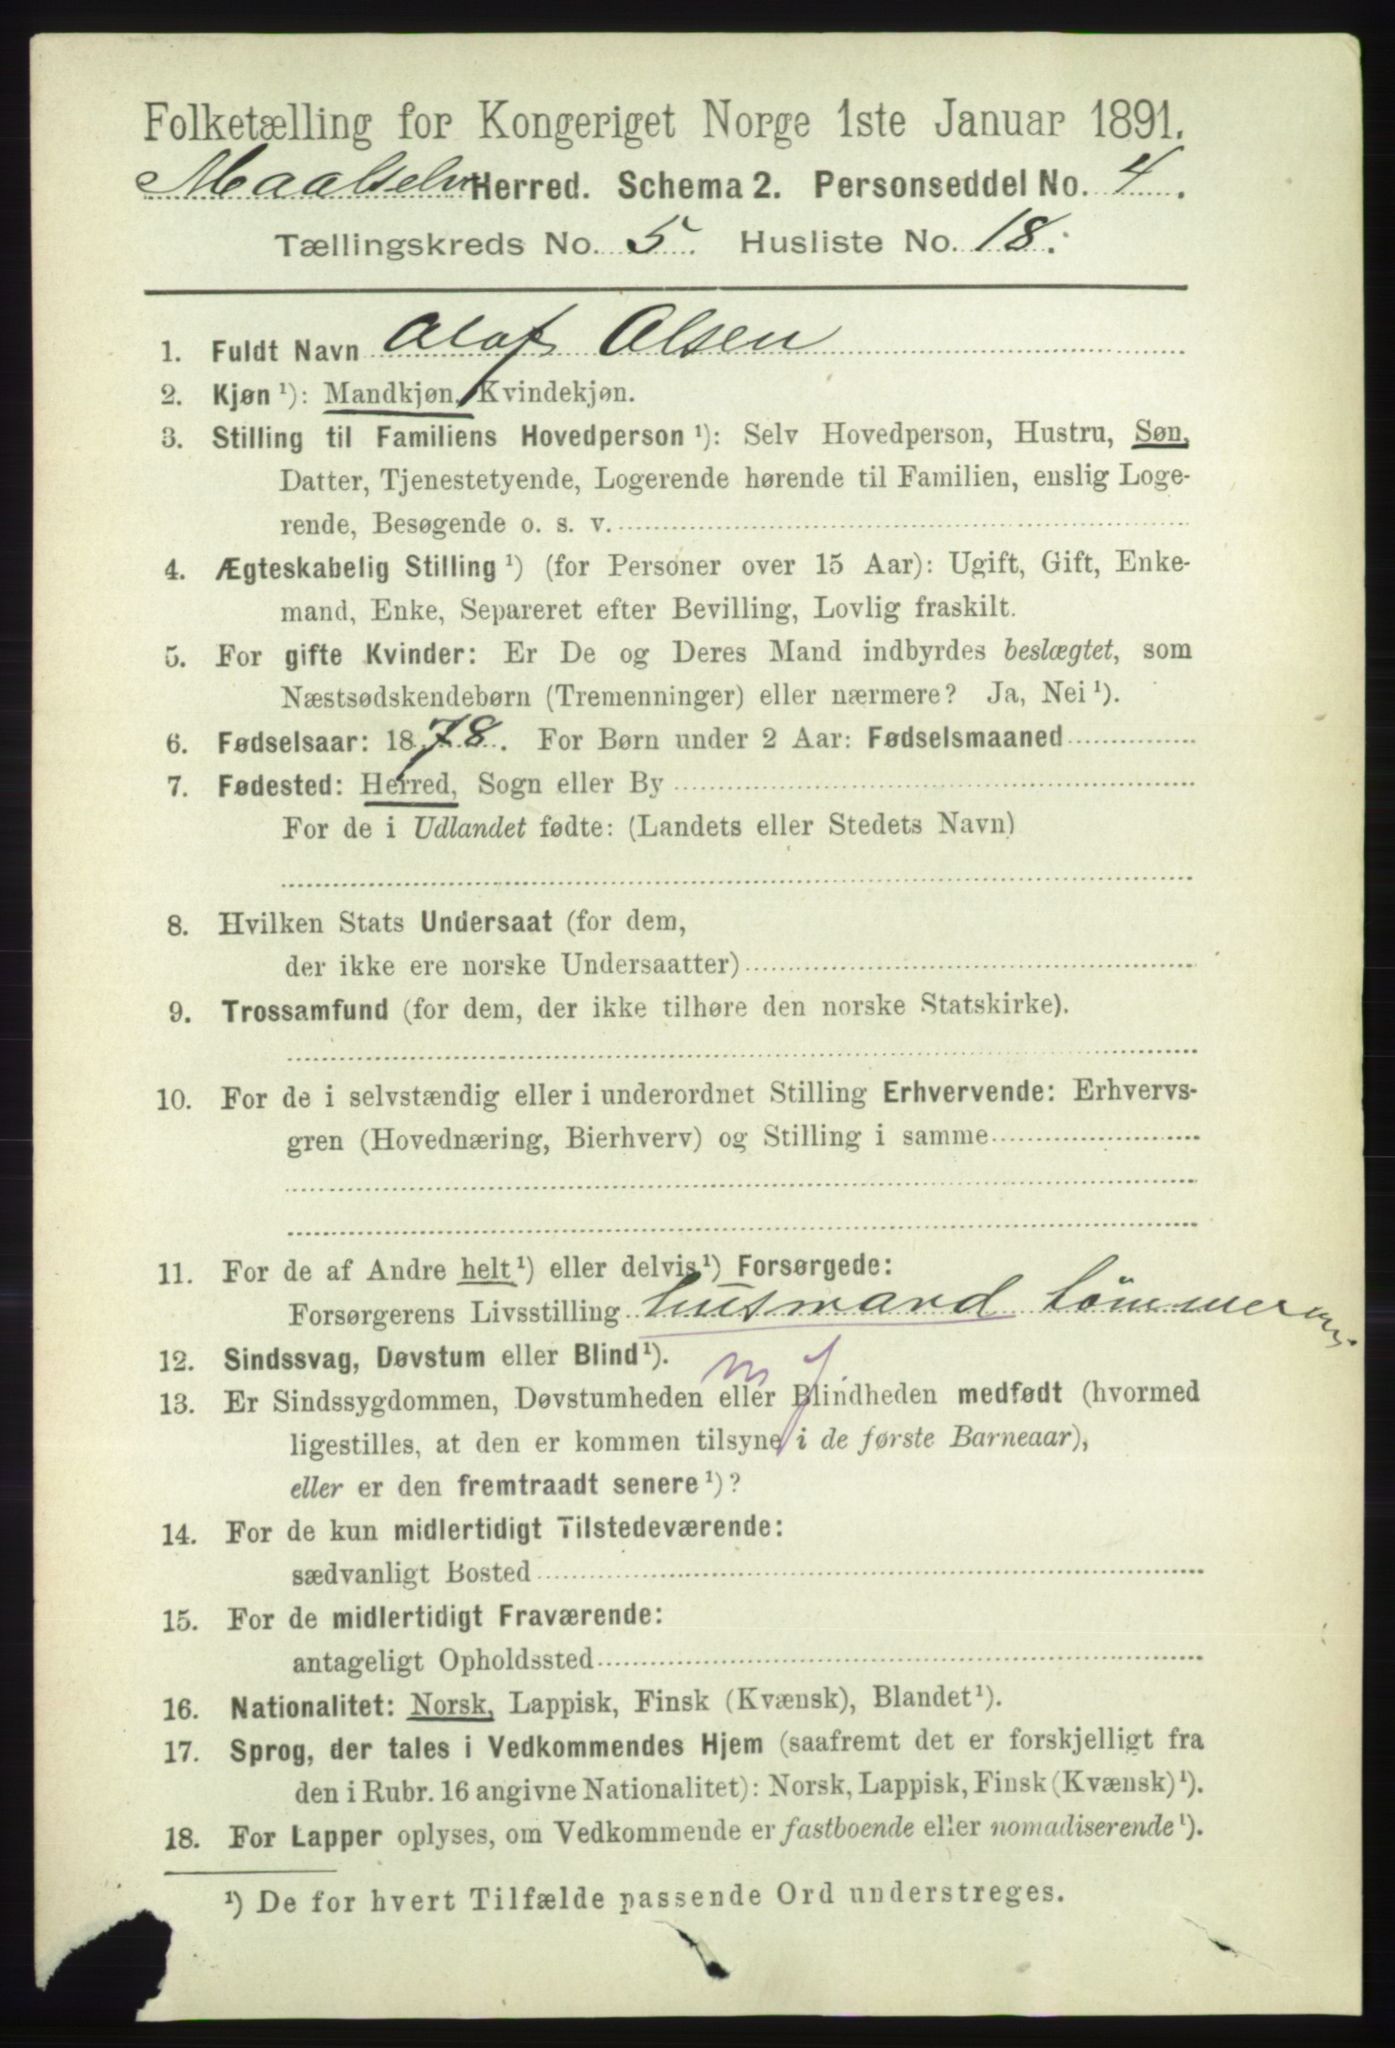 Folketælling for Kongeriget Norge 1ste Januar 1891.
Maalselv Herred. Schema 2. Personseddel No. 4.
Tællingskreds No. 5. Husliste No. 18.
1. Fuldt Navn Olaf Olsen
2. Kjøn ¹): Mandkjøn, Kvindekjøn.
3. Stilling til Familiens Hovedperson ¹): Selv Hovedperson, Hustru, Søn,
Datter, Tjenestetyende, Logerende hørende til Familien, enslig Loge-
rende, Besøgende o. s. v.
4. Ægteskabelig Stilling ¹) (for Personer over 15 Aar): Ugift, Gift, Enke-
mand, Enke, Separeret efter Bevilling, Lovlig fraskilt.
5. For gifte Kvinder: Er De og Deres Mand indbyrdes beslægtet, som
Næstsødskendebørn (Tremenninger) eller nærmere? Ja, Nei ¹).
6. Fødselsaar: 1878. For Børn under 2 Aar: Fødselsmaaned
7. Fødested: Herred, Sogn eller By
For de i Udlandet fødte: (Landets eller Stedets Navn)
8. Hvilken Stats Undersaat (for dem,
der ikke ere norske Undersaatter)
9. Trossamfund (for dem, der ikke tilhøre den norske Statskirke).
10. For de i selvstændig eller i underordnet Stilling Erhvervende: Erhvervs-
gren (Hovednæring, Bierhverv) og Stilling i samme
11. For de af Andre helt ¹) eller delvis ¹) Forsørgede:
Forsørgerens Livsstilling husmand tömmerm
12. Sindssvag, Døvstum eller Blind ¹).
m f
13. Er Sindssygdommen, Døvstumheden eller Blindheden medfødt (hvormed
ligestilles, at den er kommen tilsyne i de første Barneaar),
eller er den fremtraadt senere ¹)?
14. For de kun midlertidigt Tilstedeværende:
sædvanligt Bosted
15. For de midlertidigt Fraværende:
antageligt Opholdssted
16. Nationalitet: Norsk, Lappisk, Finsk (Kvænsk), Blandet ¹).
17. Sprog, der tales i Vedkommendes Hjem (saafremt det er forskjelligt fra
den i Rubr. 16 angivne Nationalitet): Norsk, Lappisk, Finsk (Kvænsk) ¹).
18. For Lapper oplyses, om Vedkommende er fastboende eller nomadiserende ¹).
¹) De for hvert Tilfælde passende Ord understreges.